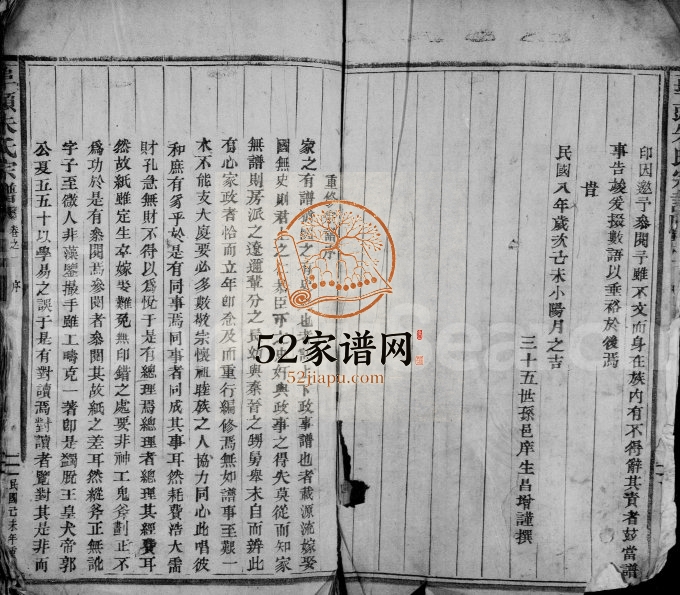 印因邀予參閱予雖不文而身在族內有不得辭其責者玆當譜
事告竣爰掇數語以垂裕於後焉
旹
民國八年歲次己未小陽月之吉
三十五世孫邑庠生昌增謹撰
重修宗譜序
家之有譜 也者 下政事譜也者載源流嫁娶
國無史則君 之 臣下 好與政事之得失莫從而知家
無譜則房派之遠邇輩分之長 與秦晉之甥舅舉末自而辨此
有心家政者恰而立年卽 及而重行編修焉無如譜事至艱一
木不能支大庭要必多數敬宗懷祖睦族之人協力同心此唱彼
和庶有豸乎於是有同事焉同事者同成其事耳然耗費浩大需
財孔急無財不得以爲悅于是有總理焉總理者總理其經費耳
然故紙雖定生卒嫁娶難免無印錯之處要非神工鬼斧劃正不
爲功於是有參閱焉參閱者參閱其故紙之差耳然縱斧正無訛
字子至微人非藻鑒撮手雖工疇克一著卽是蠲脫王皇犬帝郭
公夏五五十以學易之誤于是有對讀焉對讀者覽對其是非而
朱氏宗譜 卷之 序
民國己未年重
52家谱网
52jiapu.com